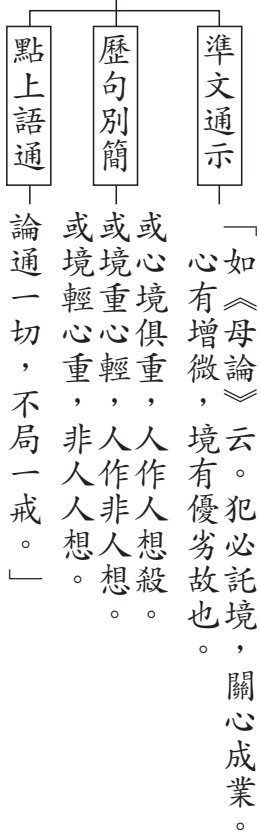 準文通示
「如《母論》云。犯必託境，關心成業。
心有增微，境有優劣故也。
歷句別簡
或心境俱重，人作人想殺。
或境重心輕，人作非人想。
或境輕心重，非人人想。
點上語通
論通一切，不局一戒。」